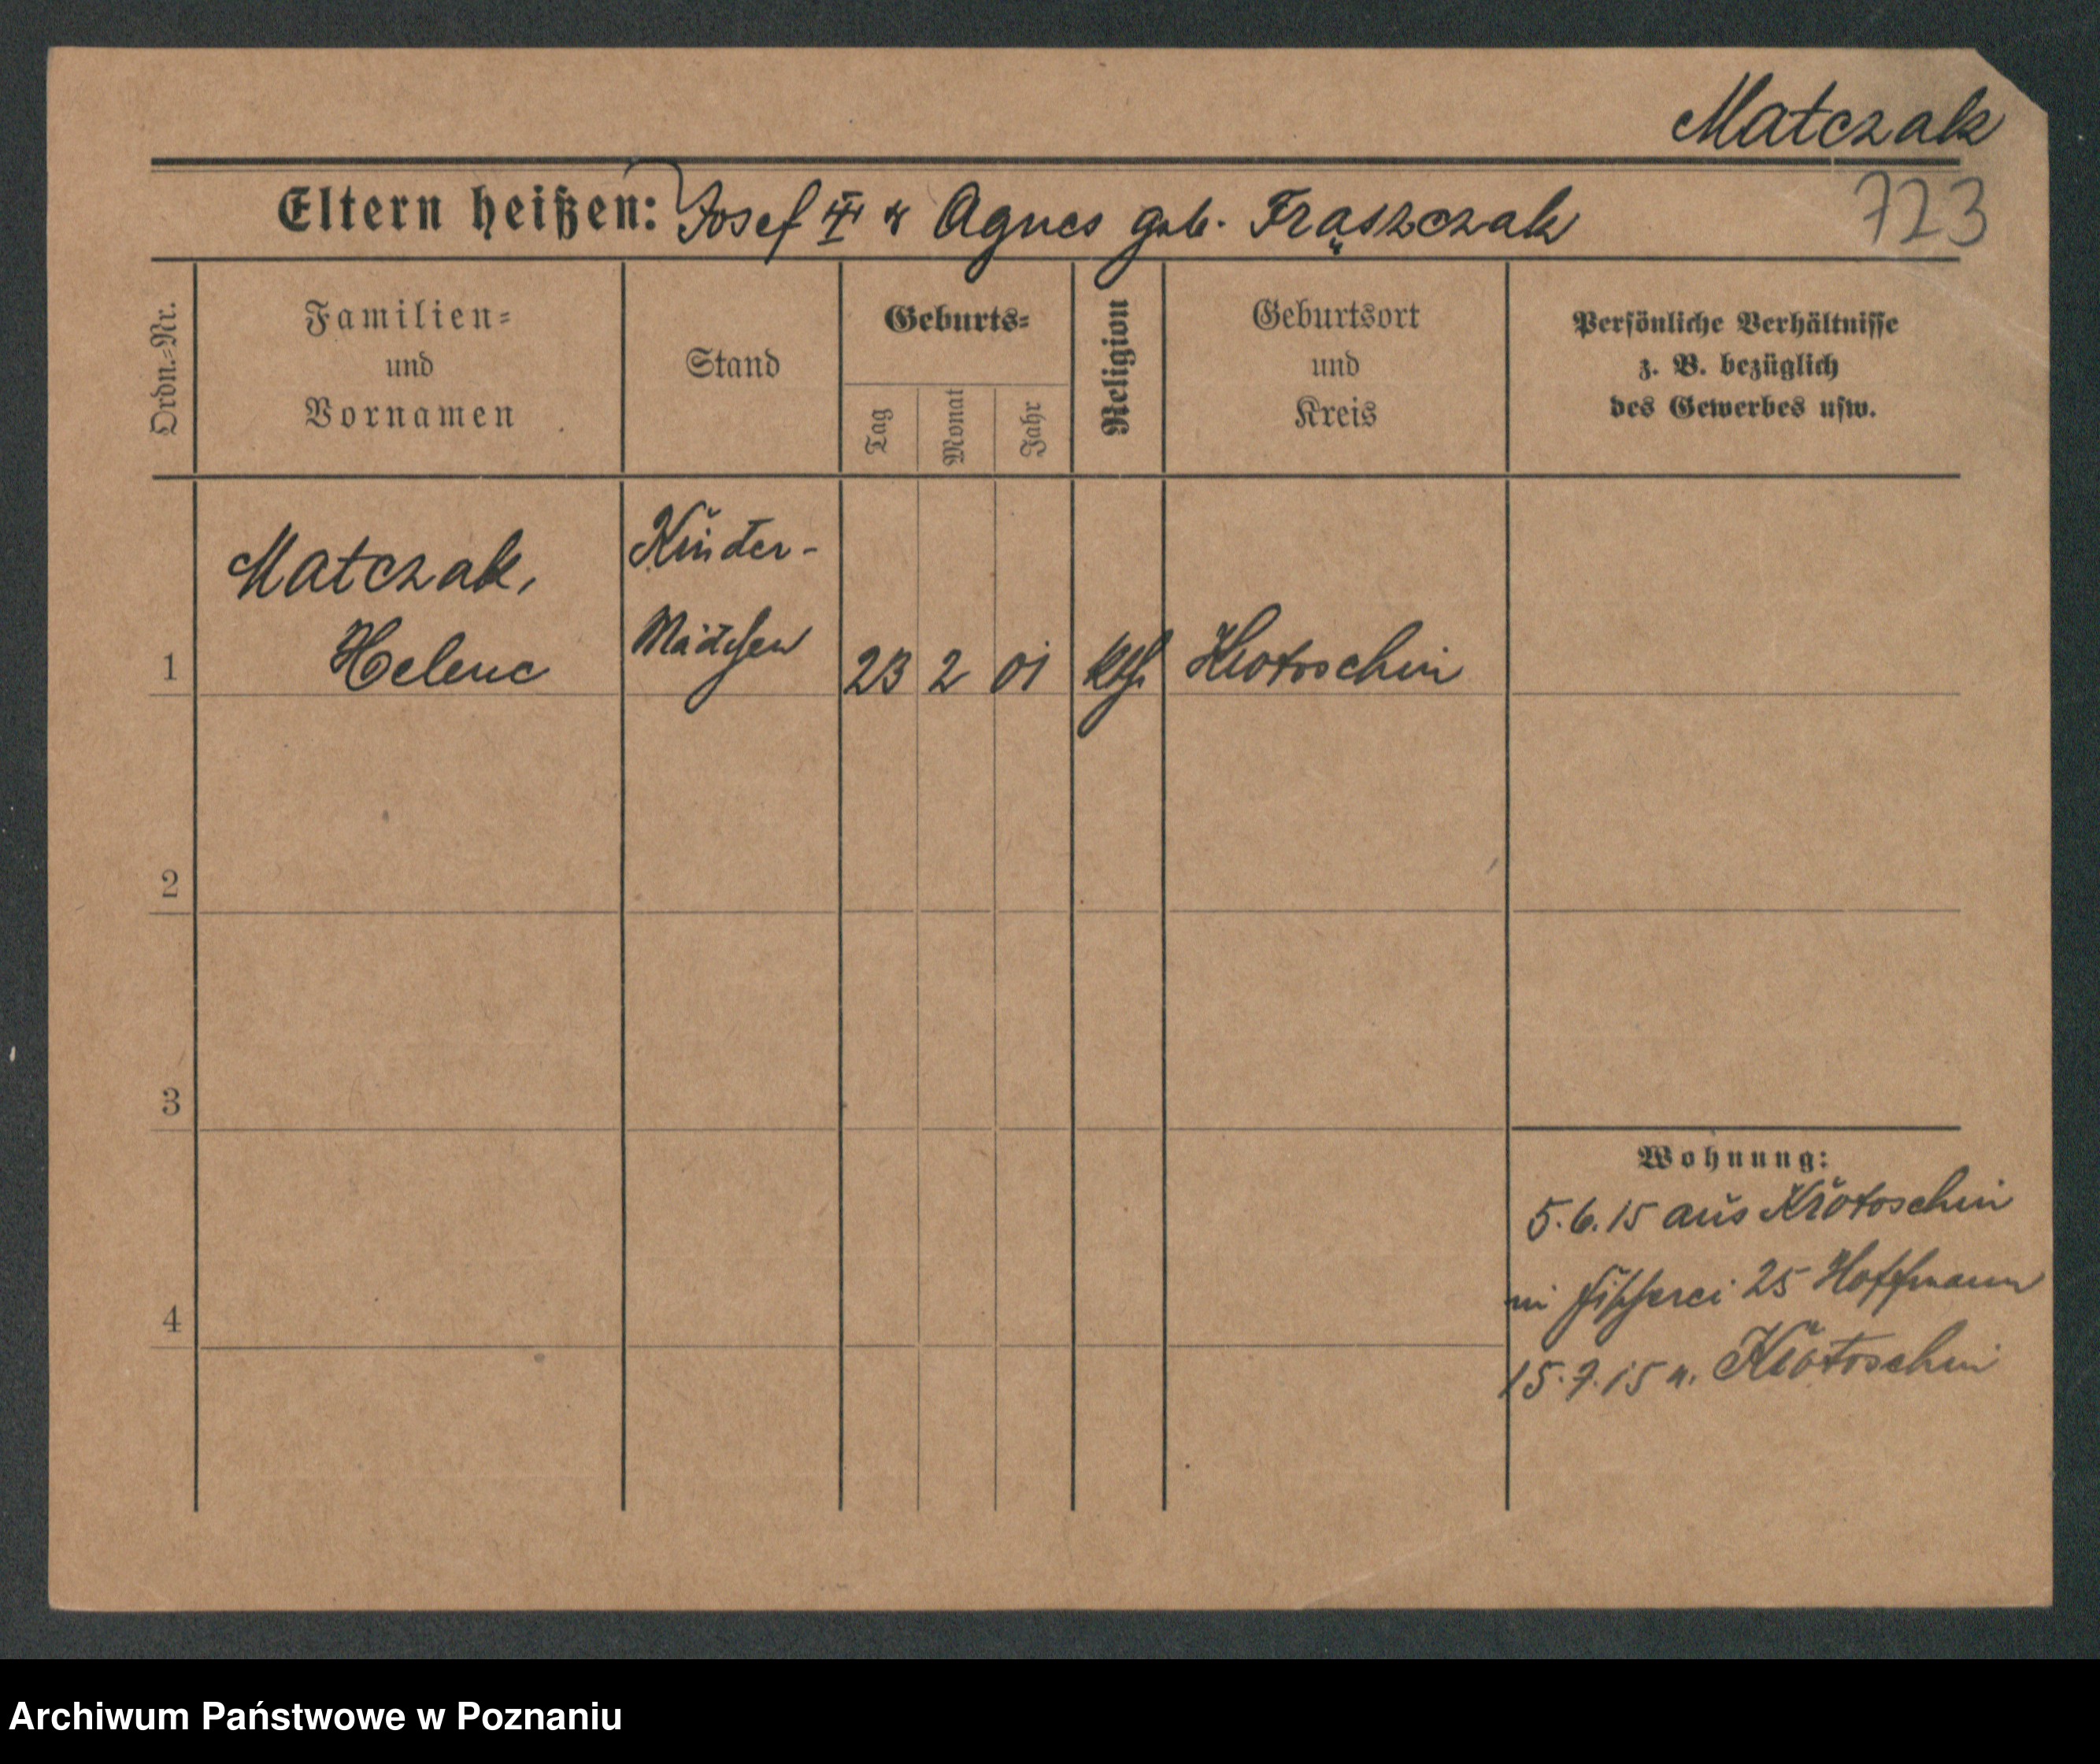 Matczak
723
Eltern heißen: Josef III & Agnes geb. Frąszczak
Ordn.-Nr.
Familien-
und
Vornamen
Stand
Geburts-
Tag
Monat
Jahr
Religion
Geburtsort
und
Kreis
Persönliche Verhältnisse
z. B. bezüglich
des Gewerbes usw.
Matczak,
Helene
Kinder-
Mädchen
1
23 2 01 kth Krotoschin
2
3
4
Wohnung:
5.6.15 aus Krotoschin
in Fischerei 25 Hoffmann
15.7.15 n. Krotoschin
Archiwum Państwowe w Poznaniu